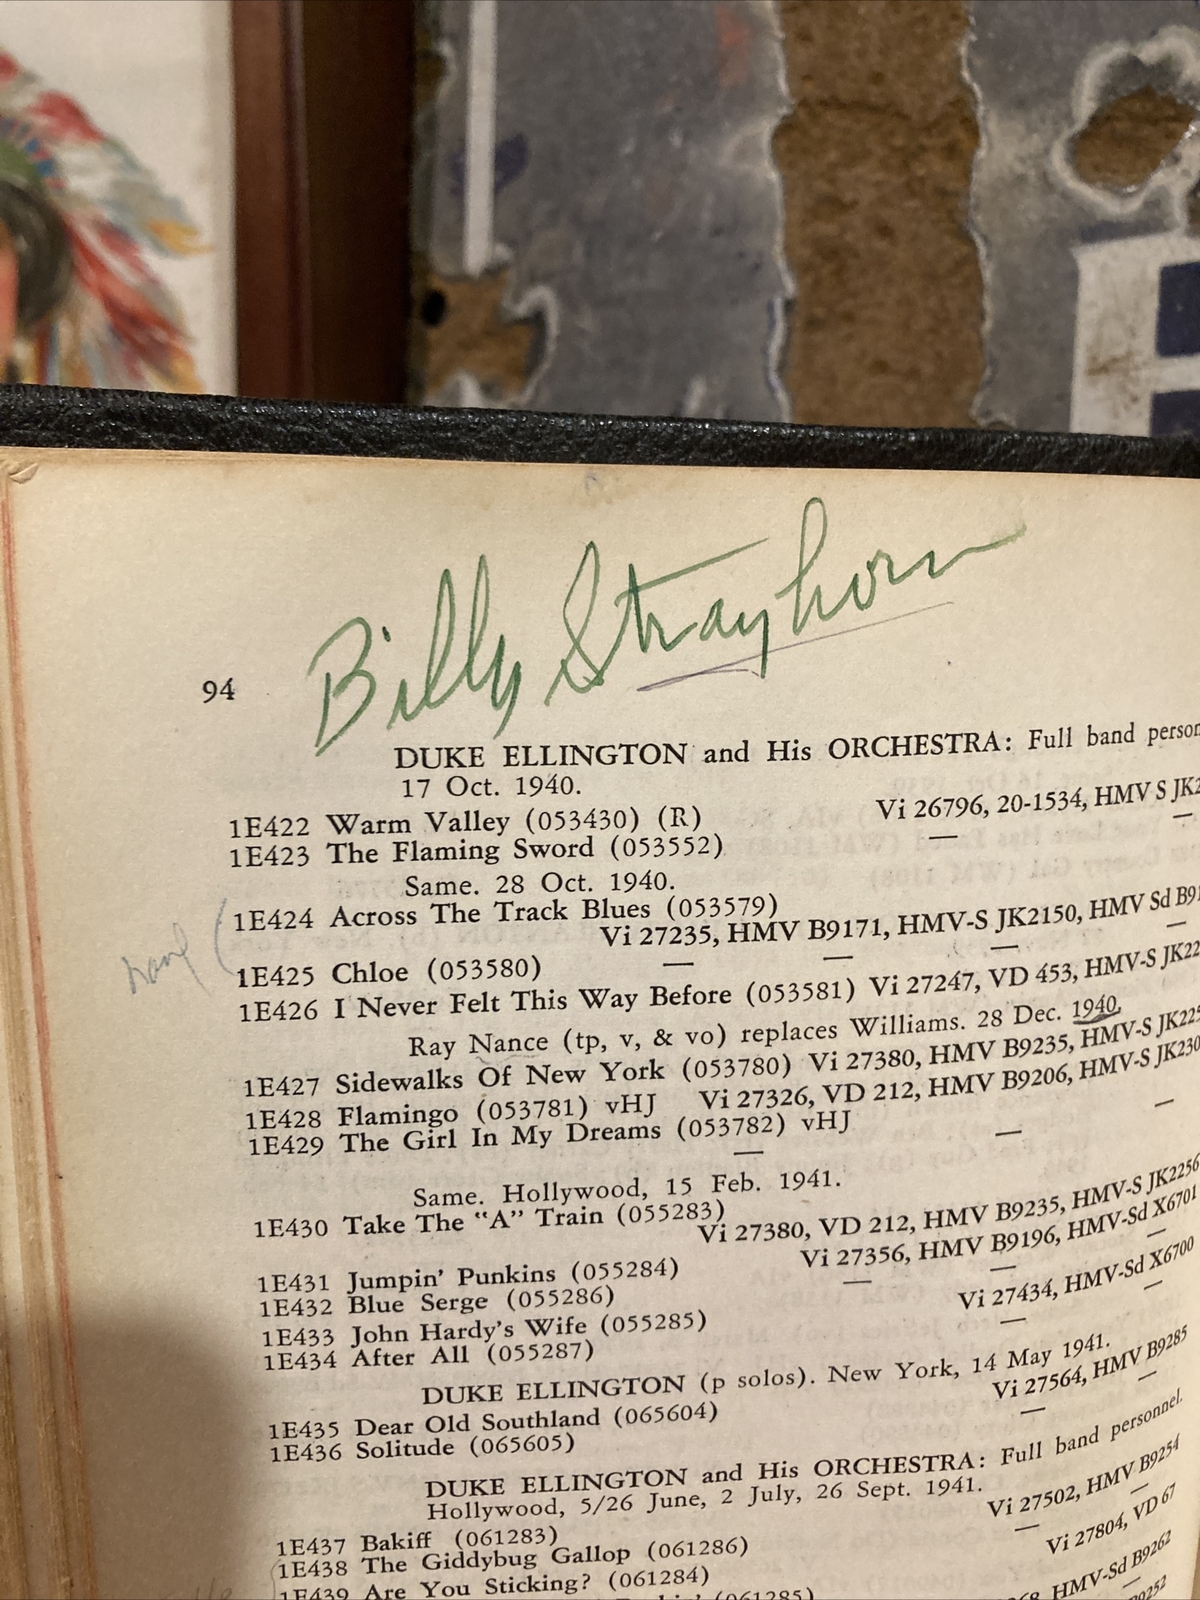 Billy Strayhorn
94
DUKE ELLINGTON and His ORCHESTRA: Full band person
17 Oct. 1940.
1E422 Warm Valley (053430) (R) Vi 26796, 20-1534, HMV S JK2
1E423 The Flaming Sword (053552) — —
Same. 28 Oct. 1940.
1E424 Across The Track Blues (053579)
Vi 27235, HMV B9171, HMV-S JK2150, HMV Sd B91
have ( 1E425 Chloe (053580) — — — —
1E426 I Never Felt This Way Before (053581) Vi 27247, VD 453, HMV-S JK22
Ray Nance (tp, v, & vo) replaces Williams. 28 Dec. 1940.
1E427 Sidewalks Of New York (053780) Vi 27380, HMV B9235, HMV-S JK225
1E428 Flamingo (053781) vHJ Vi 27326, VD 212, HMV B9206, HMV-S JK230
1E429 The Girl In My Dreams (053782) vHJ — — —
Same. Hollywood, 15 Feb. 1941.
1E430 Take The "A" Train (055283)
Vi 27380, VD 212, HMV B9235, HMV-S JK2256
1E431 Jumpin' Punkins (055284) Vi 27356, HMV B9196, HMV-Sd X6701
1E432 Blue Serge (055286) — — —
1E433 John Hardy's Wife (055285) Vi 27434, HMV-Sd X6700
1E434 After All (055287) — —
DUKE ELLINGTON (p solos). New York, 14 May 1941.
1E435 Dear Old Southland (065604) Vi 27564, HMV B9285
1E436 Solitude (065605) — —
DUKE ELLINGTON and His ORCHESTRA: Full band personnel.
Hollywood, 5/26 June, 2 July, 26 Sept. 1941.
1E437 Bakiff (061283) Vi 27502, HMV B9254
1E438 The Giddybug Gallop (061286) — —
1E439 Are You Sticking? (061284) Vi 27804, VD 67
(061285) HMV-Sd B9262